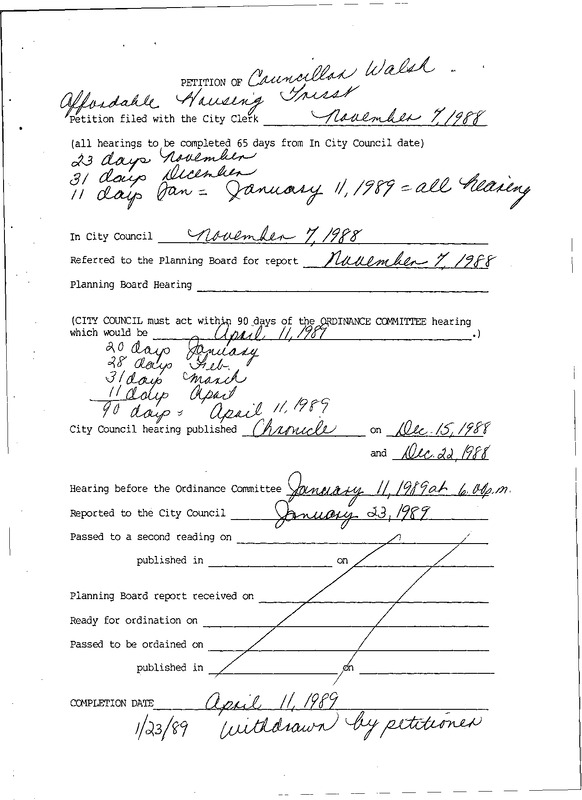 PETITION OF Councillor Walsh
Affordable Housing Trust
Petition filed with the City Clerk November 7, 1988
(all hearings to be completed 65 days from In City Council date)
23 days November
31 days December
11 days Jan = January 11, 1989 = all hearing
In City Council November 7, 1988
Referred to the Planning Board for report November 7, 1988
Planning Board Hearing
(CITY COUNCIL must act within 90 days of the ORDINANCE COMMITTEE hearing
which would be April 11, 1989 .)
20 days January
28 days Feb.
31 days March
11 days April
90 days = April 11, 1989
City Council hearing published Chronicle on Dec. 15, 1988
and Dec 22, 1988
Hearing before the Ordinance Committee January 11, 1989 at 6:00p.m.
Reported to the City Council January 23, 1989
Passed to a second reading on
published in on
Planning Board report received on
Ready for ordination on
Passed to be ordained on
published in on
COMPLETION DATE April 11, 1989
1/23/89 Withdrawn by petitioner